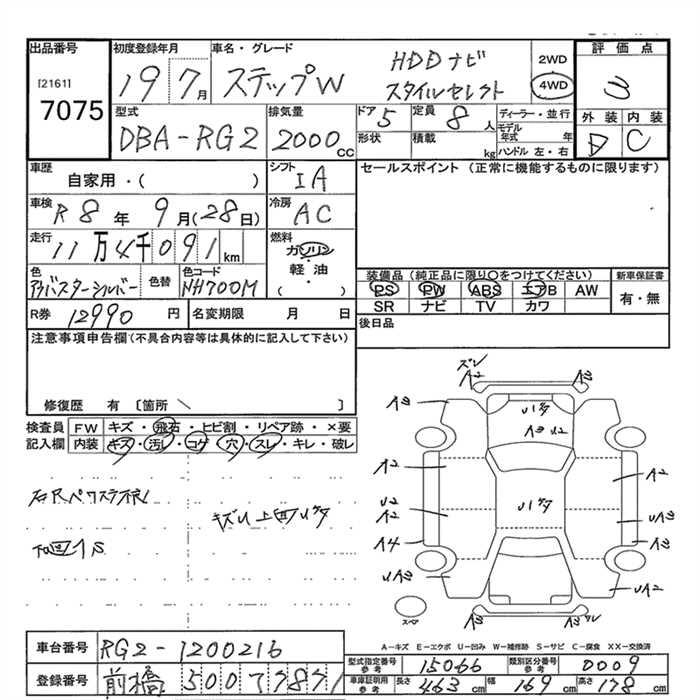 出品番号 初度登録年月 車名・グレード 評価点
[2161] 19 7月 ステップW HDDナビ 2WD 3
7075 スタイルセレクト 4WD
型式 排気量 ドア 定員 ディーラー・並行 外装 内装
DBA-RG2 2000cc 5 8人 モデル年式 年 D C
形状 積載 kg ハンドル 左・右
車歴 シフト セールスポイント (正常に機能するものに限ります)
自家用・( ) IA
車検 R8年 9月(28日) 冷房 AC
走行 11万4千091km 燃料 ガソリン・軽油・( )
色 色替 色コード 装備品 (純正品に限り○をつけてください) 新車保証書
アラバスターシルバー NH700M PS PW ABS エアB AW 有・無
SR ナビ TV カワ
R券 12990円 名変期限 月 日 後日品
注意事項申告欄 (不具合内容等は具体的に記入して下さい)
修復歴 有 〔箇所 \ 〕
検査員記入欄 FW キズ・飛石・ヒビ割・リペア跡・×要
内装 キズ・汚レ・コゲ・穴・スレ・キレ・破レ
ズレ
A2 A3
A3 Uｼﾞﾀ
A3 U2
A2 A2
U2
A2 Uｼﾞﾀ UA3
A4 A3
UA3 UA2
A3
スペア
A-キズ E-エクボ U-凹み W-補修跡 S-サビ C-腐食 XX-交換済
車台番号 RG2-1200216
登録番号 前橋 500 7871
型式指定番号 参考 15066 類別区分番号 参考 0009
車庫証明用 参考 長さ 463cm 幅 169cm 高さ 178cm